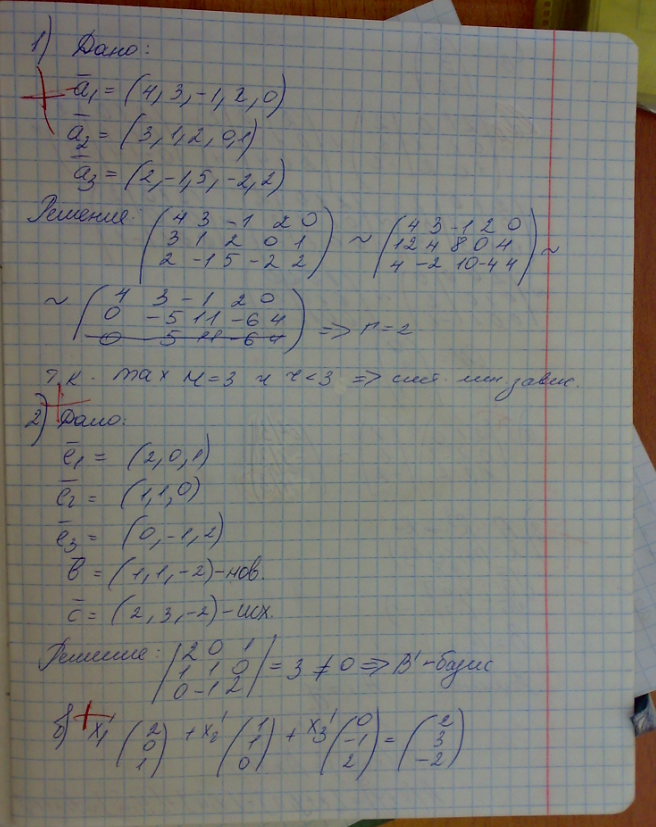 1) Дано:
a̅₁ = (4, 3, -1, 2, 0)
a̅₂ = (3, 1, 2, 0, 1)
a̅₃ = (2, -1, 5, -2, 2)
Решение: (4 3 -1 2 0 ~ (4 3 -1 2 0
3 1 2 0 1 12 4 8 0 4
2 -1 5 -2 2) 4 -2 10 -4 4) ~
~ (4 3 -1 2 0
0 -5 11 -6 4
0 -5 11 -6 4) => r=2
т.к. max r=3 и r<3 => сист. лин. завис.
2) Дано:
e̅₁ = (2, 0, 1)
e̅₂ = (1, 1, 0)
e̅₃ = (0, -1, 2)
b̅ = (1, 1, -2) - нов.
c̅ = (2, 3, -2) - исх.
Решение: |2 0 1
1 1 0
0 -1 2| = 3 ≠ 0 => B' - базис
б) x₁' (2 0 1) + x₂' (1 1 0) + x₃' (0 -1 2) = (2 3 -2)